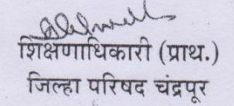 शिक्षणाधिकारी (प्राथ.)
जिल्हा परिषद चंद्रपूर